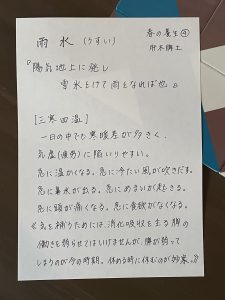 春の養生④
雨水（うすい）
『陽気地上に発し
雪氷とけて雨となればせ』
【三寒四温】
一日の中でも寒暖差が多きく、
気虚(疲労)に陥いりやすい。
急に温かくなる。急に冷たい風が吹きだす。
急に鼻水が出る。急にめまいが起きる。
急に頭が痛くなる。急に食欲がなくなる。
＜気を補うためには、消化吸収を主る脾の
働きを弱らせてはいけませんが、脾が弱って
しまうのが今の時期。休める時に休むのが妙薬。＞